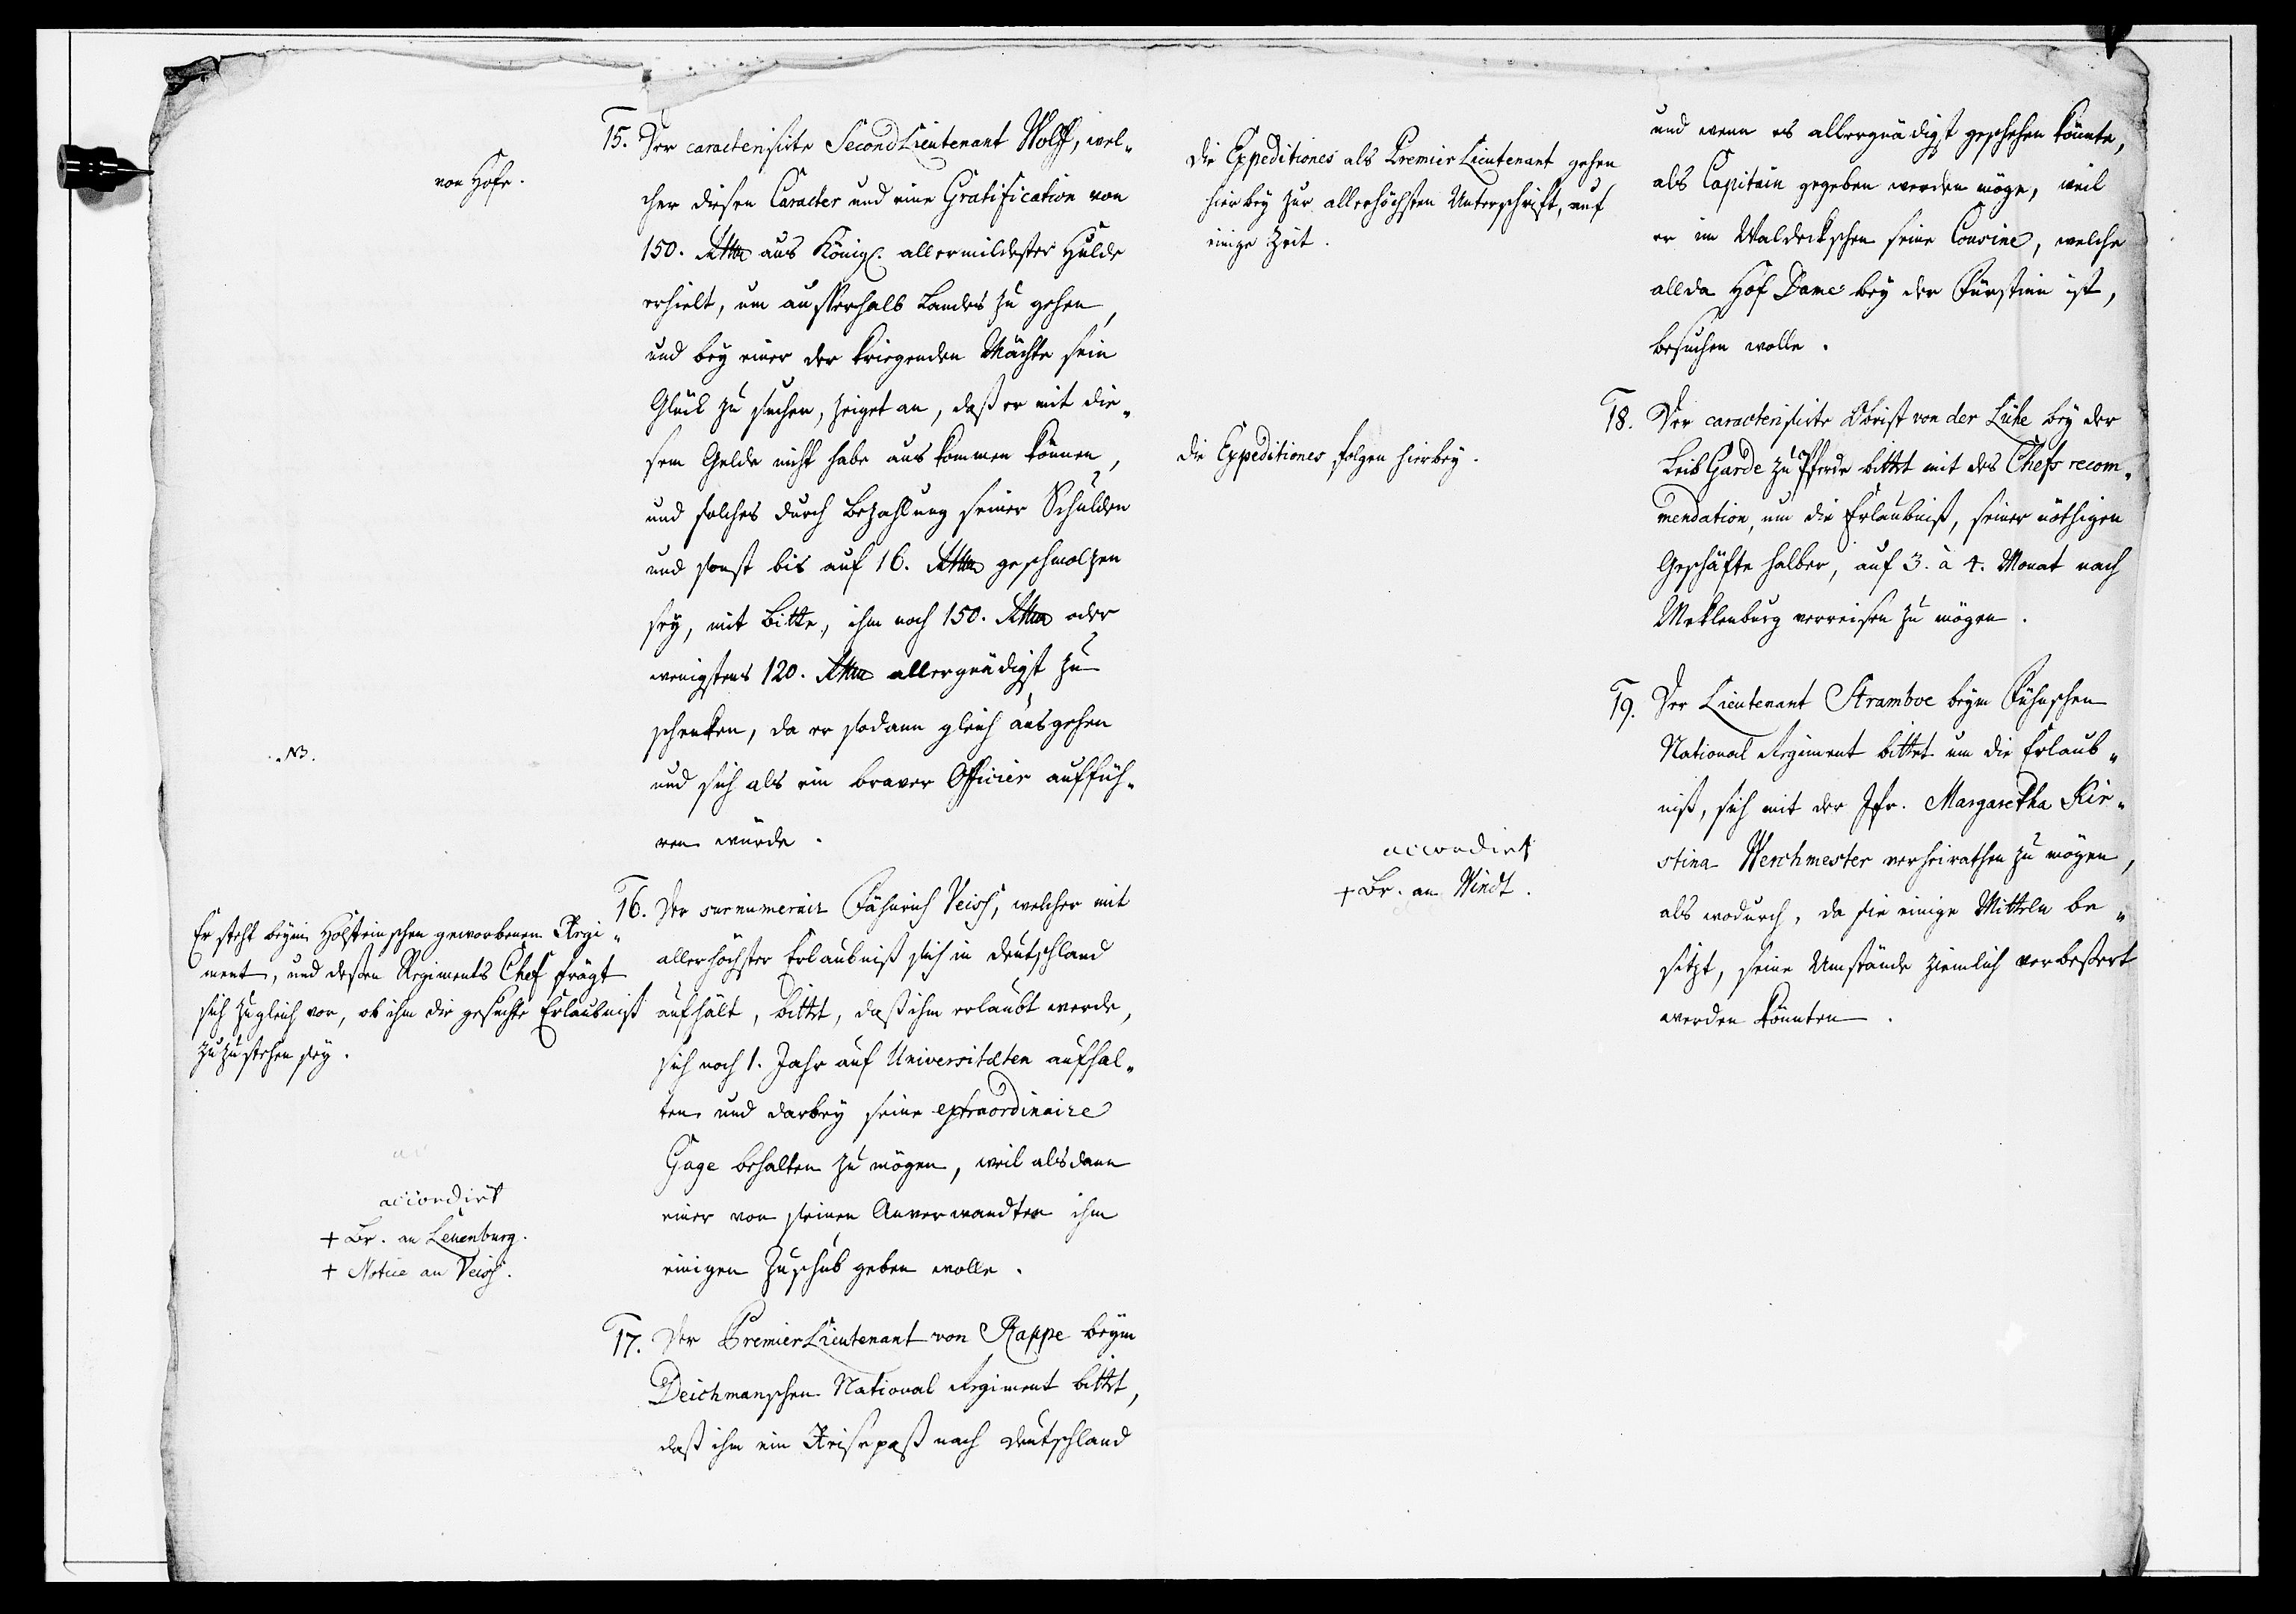 von Hofe.
15. Der caracterisirte SecondLieutenant Wolff, wel-
cher diesen Caracter und eine Gratification von
150. Rthlr aus Königl. allermildester Hulde
erhielt, um ausserhalb Landes zu gehen,
und bey einer der kriegenden Mächte sein
Glück zu suchen, zeiget an, daß er mit die-
sem Gelde nicht habe auskommen können,
und solches durch Bezahlung seiner Schulden
und sonst bis auf 16. Rthlr geschmolzen
sey, mit Bitte, ihm noch 150. Rthlr oder
wenigstens 120. Rthlr allergnädigst zu
schenken, da er sodann gleich ausgehen
und sich als ein braver Officier auffüh-
ren würde.
NB.
16. Der surnumerair Fähnrich Veiss, welcher mit
allerhöchster Erlaubniß sich in Deutschland
aufhält, bittet, daß ihm erlaubt werde,
sich noch 1. Jahr auf Universitæten aufhal-
ten und darbey seine extraordinaire
Gage behalten zu mögen, weil alsdann
einer von seinen Anverwandten ihm
einigen Zuschub geben wolle.
Er steht beym Holsteinschen geworbenen Regi-
ment, und deßen Regiments Chef frägt
sich zugleich vor, ob ihm die gesuchte Erlaubniß
zuzustehen sey.
accordirt
+ Br. an Leuenburg.
+ Notice an Veiss.
17. Der PremierLieutenant von Rappe beym
Deichmanschen National Regiment bittet,
daß ihm ein Reisepaß nach Deutschland
und wenn es allergnädigst geschehen könnte,
als Capitain gegeben werden möge, weil
er im Waldeckschen seine Cousine, welche
allda Hof Dame bey der Fürstinn ist,
besuchen wolle.
Die Expeditiones als Premier Lieutenant gehen
hierbey zur allerhöchsten Unterschrift, auf
einige Zeit.
18. Der caracterisirte Obrist von der Lühe bey der
Leib Garde zu Pferde bittet mit des Chefs recom-
mendation, um die Erlaubniß, seiner nöthigen
Geschäfte halber, auf 3. à 4. Monat nach
Meklenburg verreisen zu mögen.
Die Expeditiones folgen hierbey.
19. Der Lieutenant Stramboe beym Fühnschen
National Regiment bittet um die Erlaub-
niß, sich mit der Jfr. Margaretha Kir-
stina Werchmester verheirathen zu mögen,
als wodurch, da sie einige Mitteln be-
sitzt, seine Umstände ziemlich verbeßert
werden könnten.
accordirt
+ Br. an Windt.